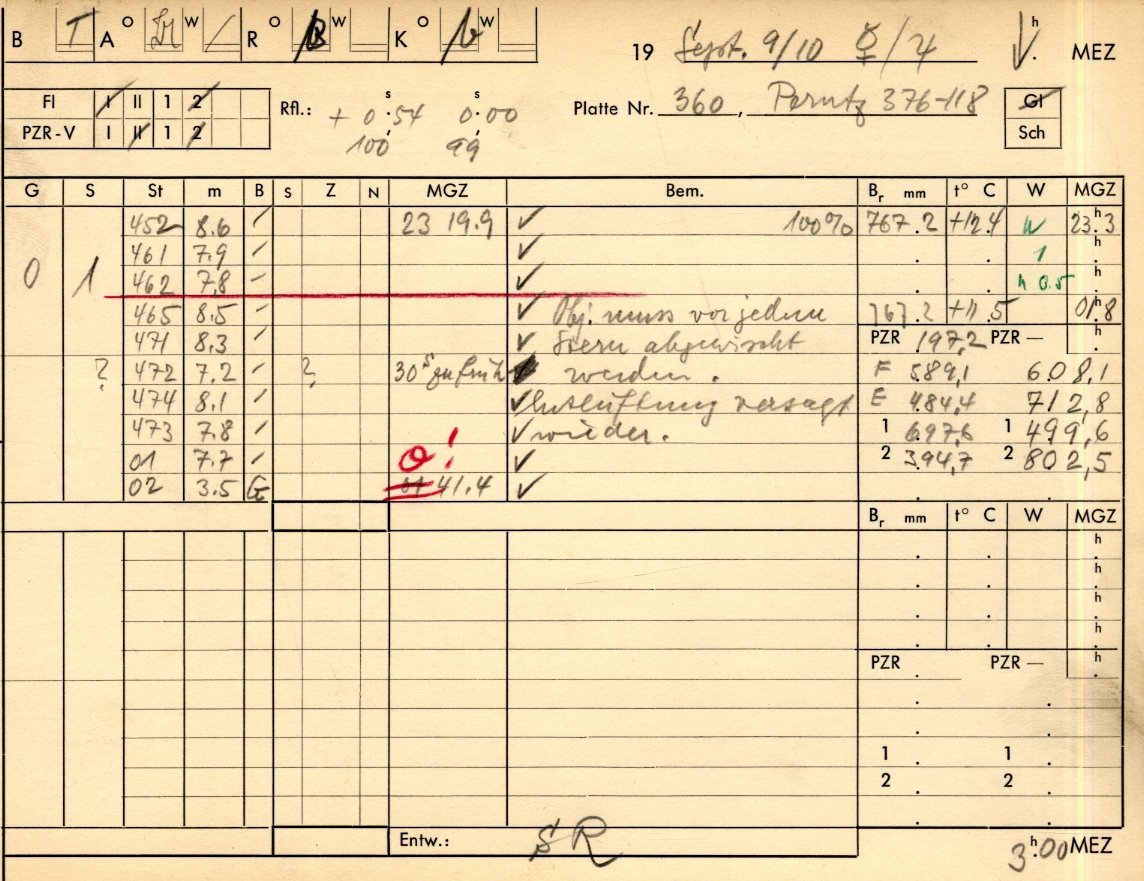 B T A O W R O W K O W 19 Sept. 9/10 ☿/♃ h MEZ
Fl I II 1 2 Rfl.: + 0.54 s 0.00 s Platte Nr. 360, Perutz 376-118 Gl
PZR-V I II 1 2 100 99 Sch
G S St m B S Z N MGZ Bem. Br mm t° C W MGZ
452 8.6 23 19.9 ✓ 100% 767.2 +12.4 W 23h.3
461 7.9 ✓ 1 h
0 1 462 7.8 ✓ h 0.5 h
465 8.5 ✓ Obj. muss vor jedem 767.2 +11.5 01h.8
471 8.3 ✓ Stern abgewischt PZR 197,2 PZR — h
? 472 7.2 ? 30s zu früh werden. F 589,1 608,1
474 8.1 ✓ Entlüftung versagt E 484,4 712,8
473 7.8 ✓ wieder. 1 697,6 1 499,6
01 7.7 0! ✓ 2 394,7 2 802,5
02 3.5 01 41.4 ✓
Br mm t° C W MGZ
h
h
h
h
PZR PZR — h
1 1
2 2
Entw.: SR
3h.00 MEZ